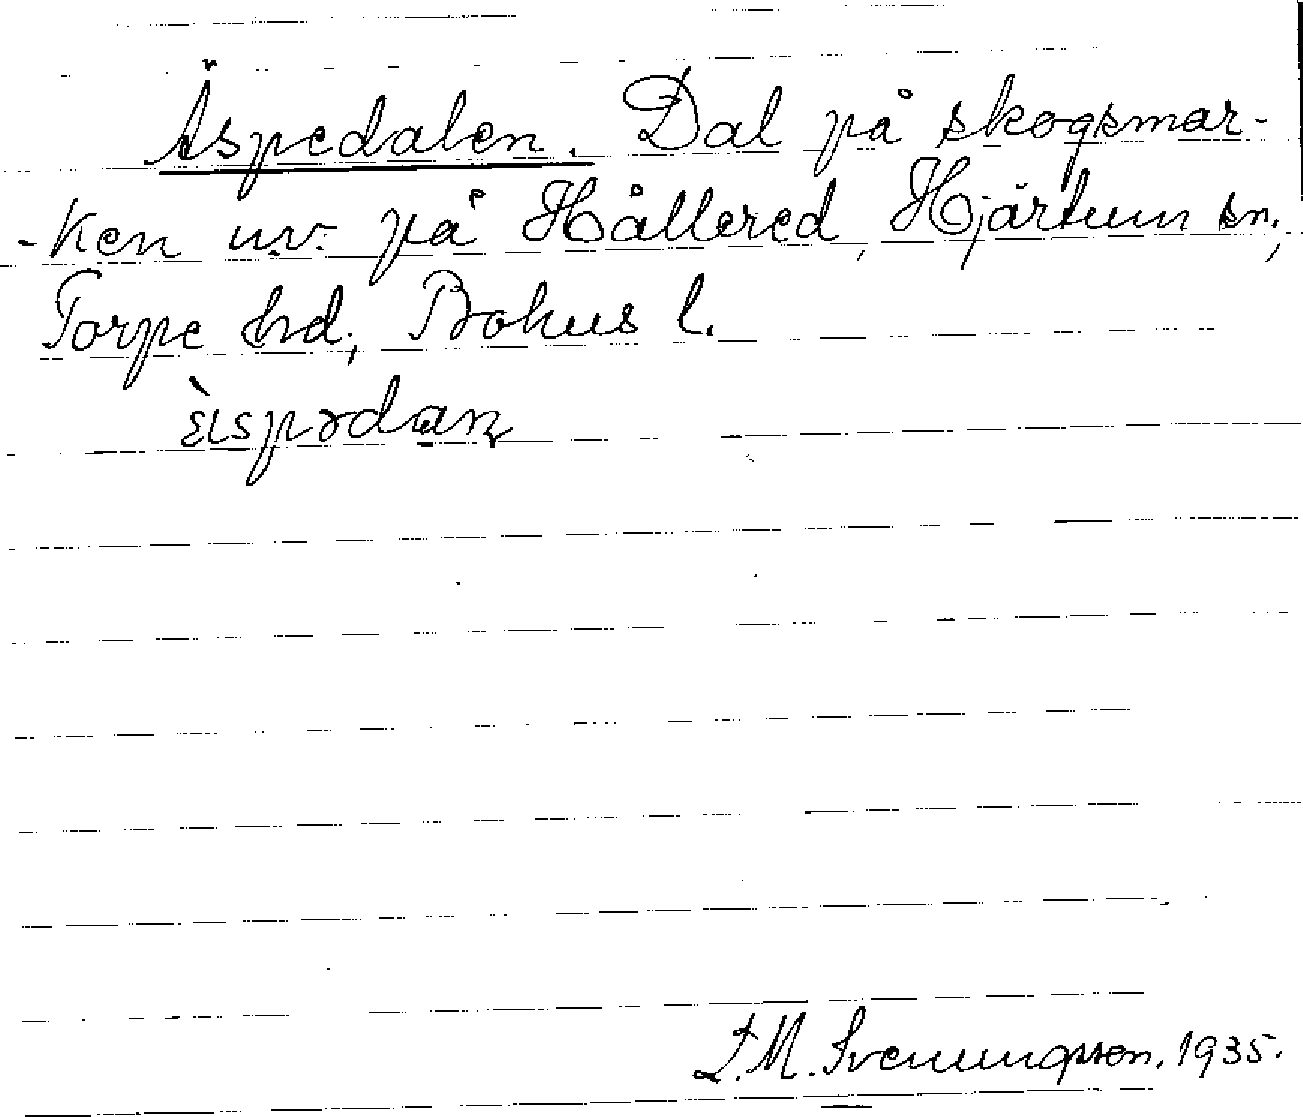 Äspedalen. Dal på skogsmar-
-ken n.v. på Hållered, Hjärtum sn.,
Torpe hd., Bohus l.
ὲɩspədaɳ
J.M. Svenungsson. 1935.